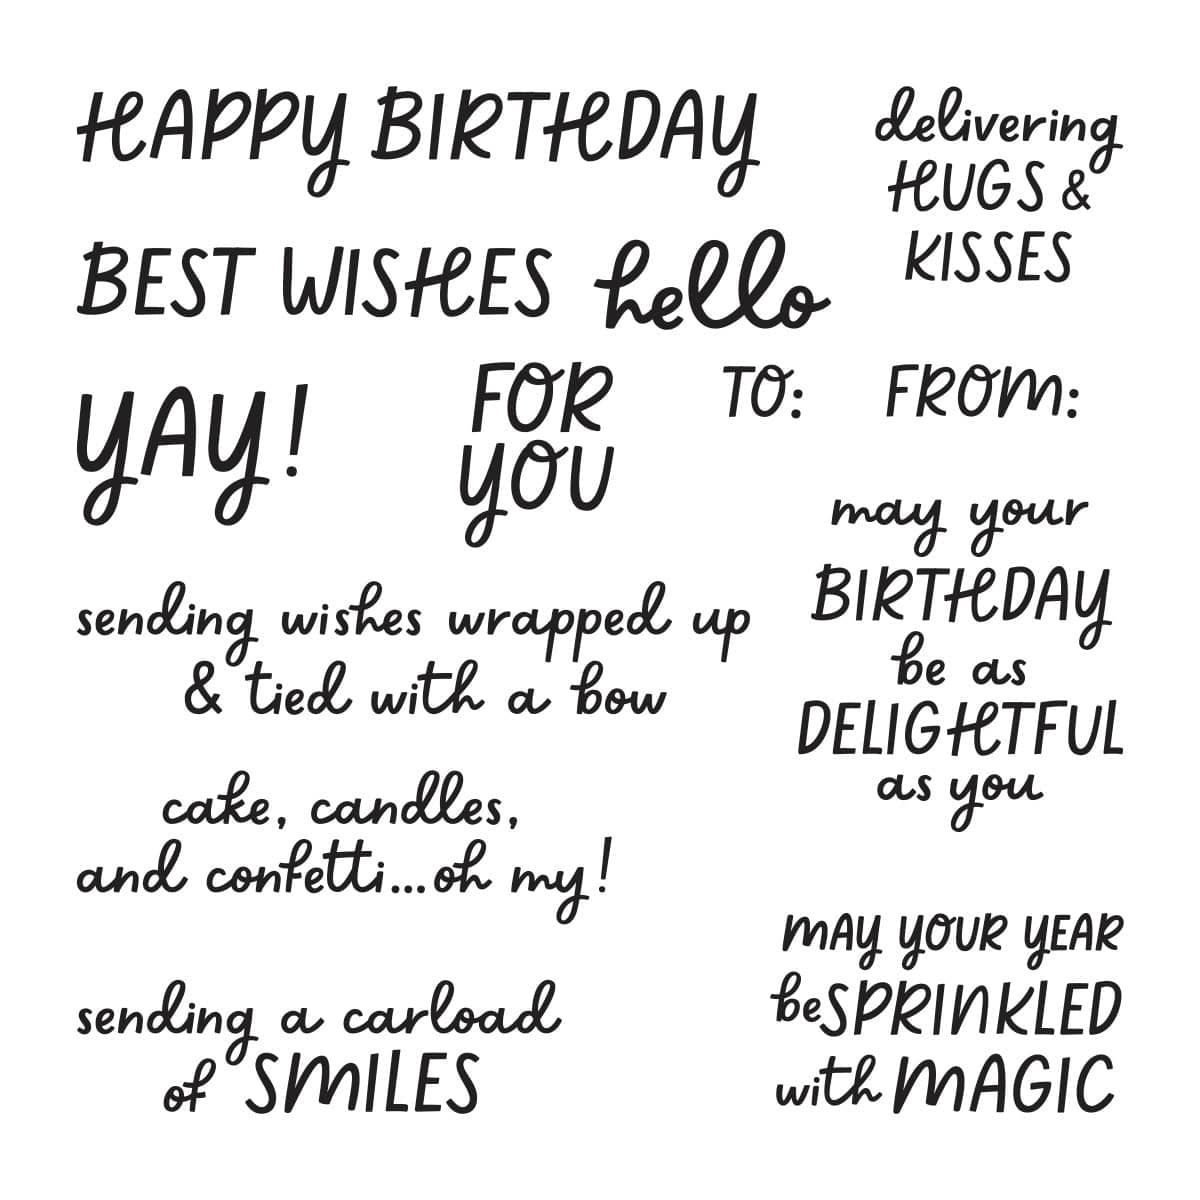 HAPPY BIRTHDAY
delivering
HUGS &
KISSES
BEST WISHES
hello
YAY!
FOR
YOU
TO:
FROM:
may your
BIRTHDAY
be as
DELIGHTFUL
as you
sending wishes wrapped up
& tied with a bow
cake, candles,
and confetti...oh my!
MAY YOUR YEAR
be SPRINKLED
with MAGIC
sending a carload
of SMILES